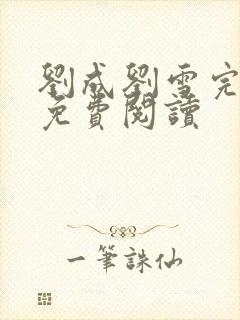 劉成劉雪完
免費閱讀
一筆誅仙